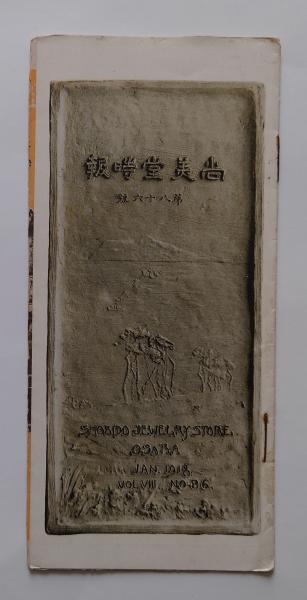 尚美堂時報
第八十六號
SHOBIDO JEWELRY STORE.
OSAKA
JAN. 1918.
VOL VIII. NO. 86.